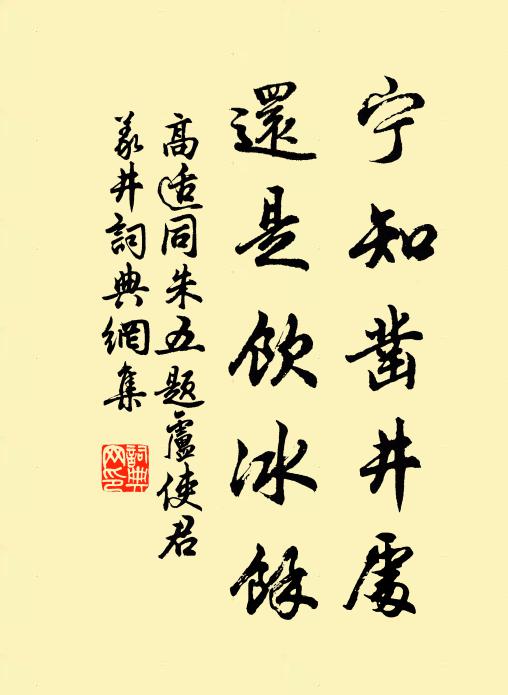 宁知凿井處
還是飲冰餘
高适同朱五題盧使君
義井詞典網集
詞典网印